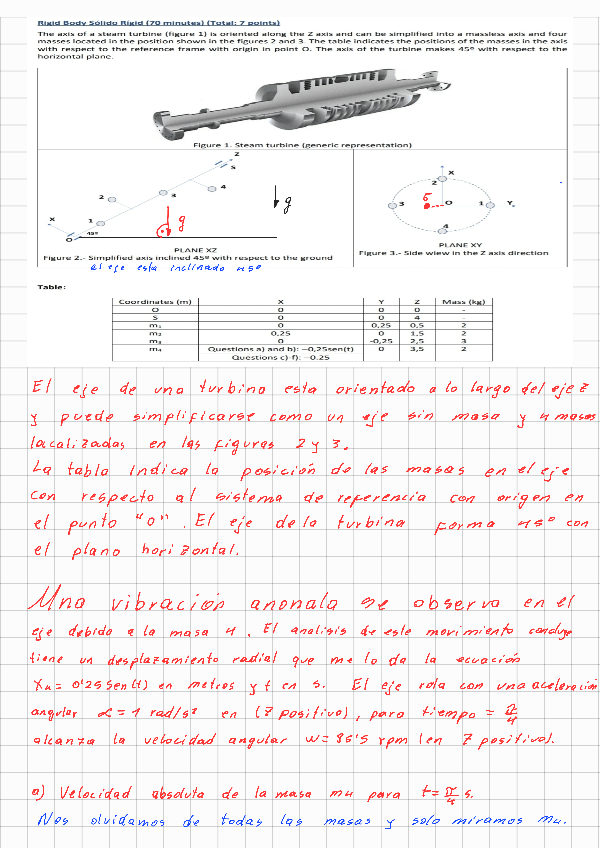 Rigid Body Sólido Rigid (70 minutes) (Total: 7 points)
The axis of a steam turbine (figure 1) is oriented along the Z axis and can be simplified into a massless axis and four
masses located in the position shown in the figures 2 and 3. The table indicates the positions of the masses in the axis
with respect to the reference frame with origin in point O. The axis of the turbine makes 45º with respect to the
horizontal plane.
Figure 1. Steam turbine (generic representation)
Z
S
4
3
2
1
X
O
45º
g
g
PLANE XZ
Figure 2.- Simplified axis inclined 45º with respect to the ground
al eje esta inclinado 45º
X
2
3
O
1
Y
4
PLANE XY
Figure 3.- Side wiew in the Z axis direction
Table:
Coordinates (m) X Y Z Mass (kg)
O 0 0 0 -
S 0 0 4 -
m₁ 0 0,25 0,5 2
m₂ 0,25 0 1,5 2
m₃ 0 -0,25 2,5 3
m₄ Questions a) and b): −0,25sen(t) 0 3,5 2
Questions c)-f): −0.25
El eje de una turbina esta orientado a lo largo del eje z
y puede simplificarse como un eje sin masa y 4 masas
localizadas en las figuras 2 y 3.
La tabla indica la posición de las masas en el eje
con respecto al sistema de referencia con origen en
el punto "o". El eje de la turbina forma 45º con
el plano horizontal.
Una vibración anomala se observa en el
eje debido a la masa 4. El analisis de este movimiento concluye
tiene un desplazamiento radial que me lo da la ecuación
X₄= 0'25 sen(t) en metros y t en s. El eje rota con una aceleración
angular α=1 rad/s² en (z positivo), para tiempo = π/4
alcanza la velocidad angular w= 95'5 rpm (en z positivo).
a) Velocidad absoluta de la masa m4 para t=π/4 s.
Nos olvidamos de todas las masas y solo miramos m4.